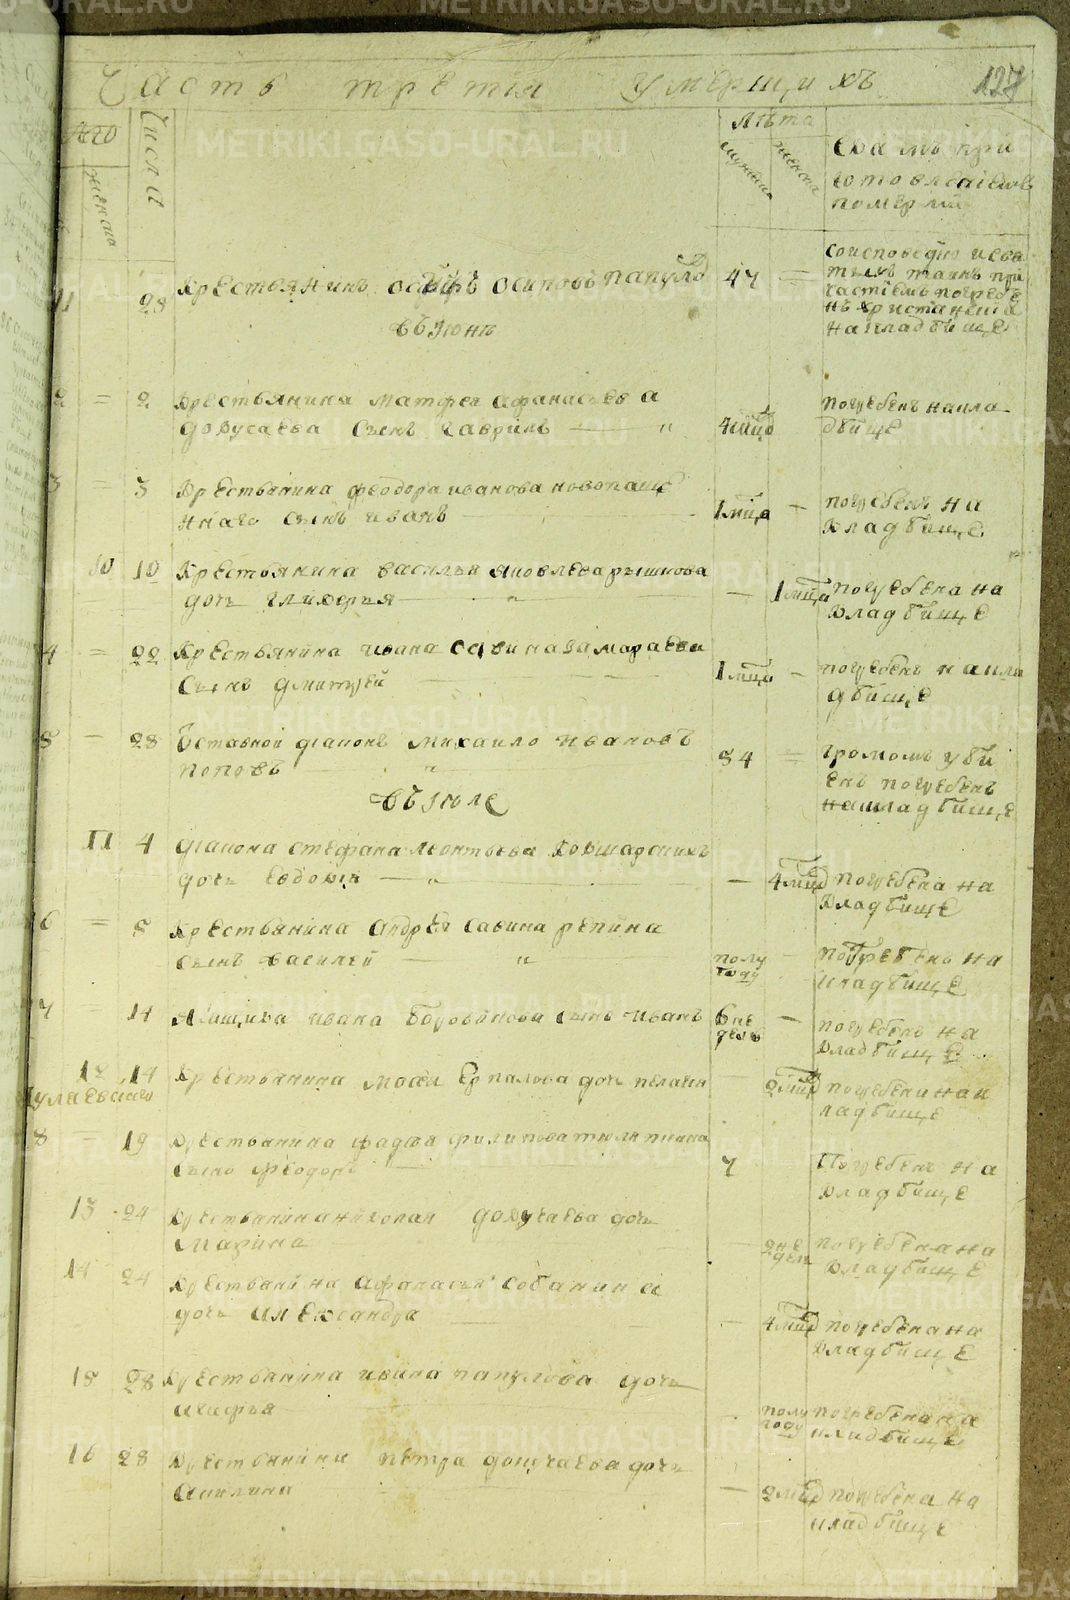 Часть третія умершихъ
127
Лѣта
числа
женска
мужеска
женска
померли
11 28 Крестьянинъ осипъ осиповъ папуло 47 =
соисповедию исвя
тыхъ таинъ при
частіемъ погребе
нъ
на кладбище
въ Июнѣ
2 = 2 Крестьянина матфея афанасьева
сынъ гаврилъ 4 мца погребенъ накла
дбище
3 = 3 Крестьянина феодора иванова новопаше
ннаго сынъ иванъ 1 мца погребенъ на
кладбище
10 10 Крестьянина василья яковлева рышкова
дочь гликерья 1 мца погребена на
кладбище
4 = 22 Крестьянина ивана савина замараева
сынъ дмитрей 1 мца погребенъ накла
дбище
5 = 28 Отставной діаконъ михаило ивановъ
поповъ 54 = громомъ уби
енъ погребенъ
накладбище
въ Июле
11 4 діакона стефана леонтьева
дочь евдокия 4 мца погребена на
кладбище
6 = 5 Крестьянина андрея савина репина
сынъ василей полу
году погребенъ на
кладбище
7 = 14 ивана сынъ иванъ 6 не
дель погребенъ на
кладбище
12 14 Крестьянина дочь пелагея 2 мца погребена нак
ладбище
8 = 19 Крестьянина фадея филипова
сынъ феодоръ 7 Погребенъ на
кладбище
13 24 Крестьянина николая дочь
Марина 2 не
дель погребена на
кладбище
14 24 Крестьянина афанасья собанина
дочь александра 4 мца погребена на
кладбище
15 28 Крестьянина ивана папулова дочь
агафья полу
году погребена на
кладбище
16 28 Крестьянина петра дочь
акилина 2 мца погребена на
кладбище
METRIKI.GASO-URAL.RU